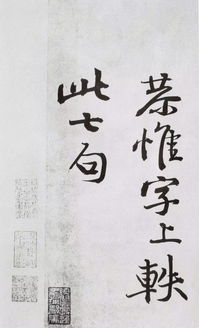 恭惟字上軼
此七句